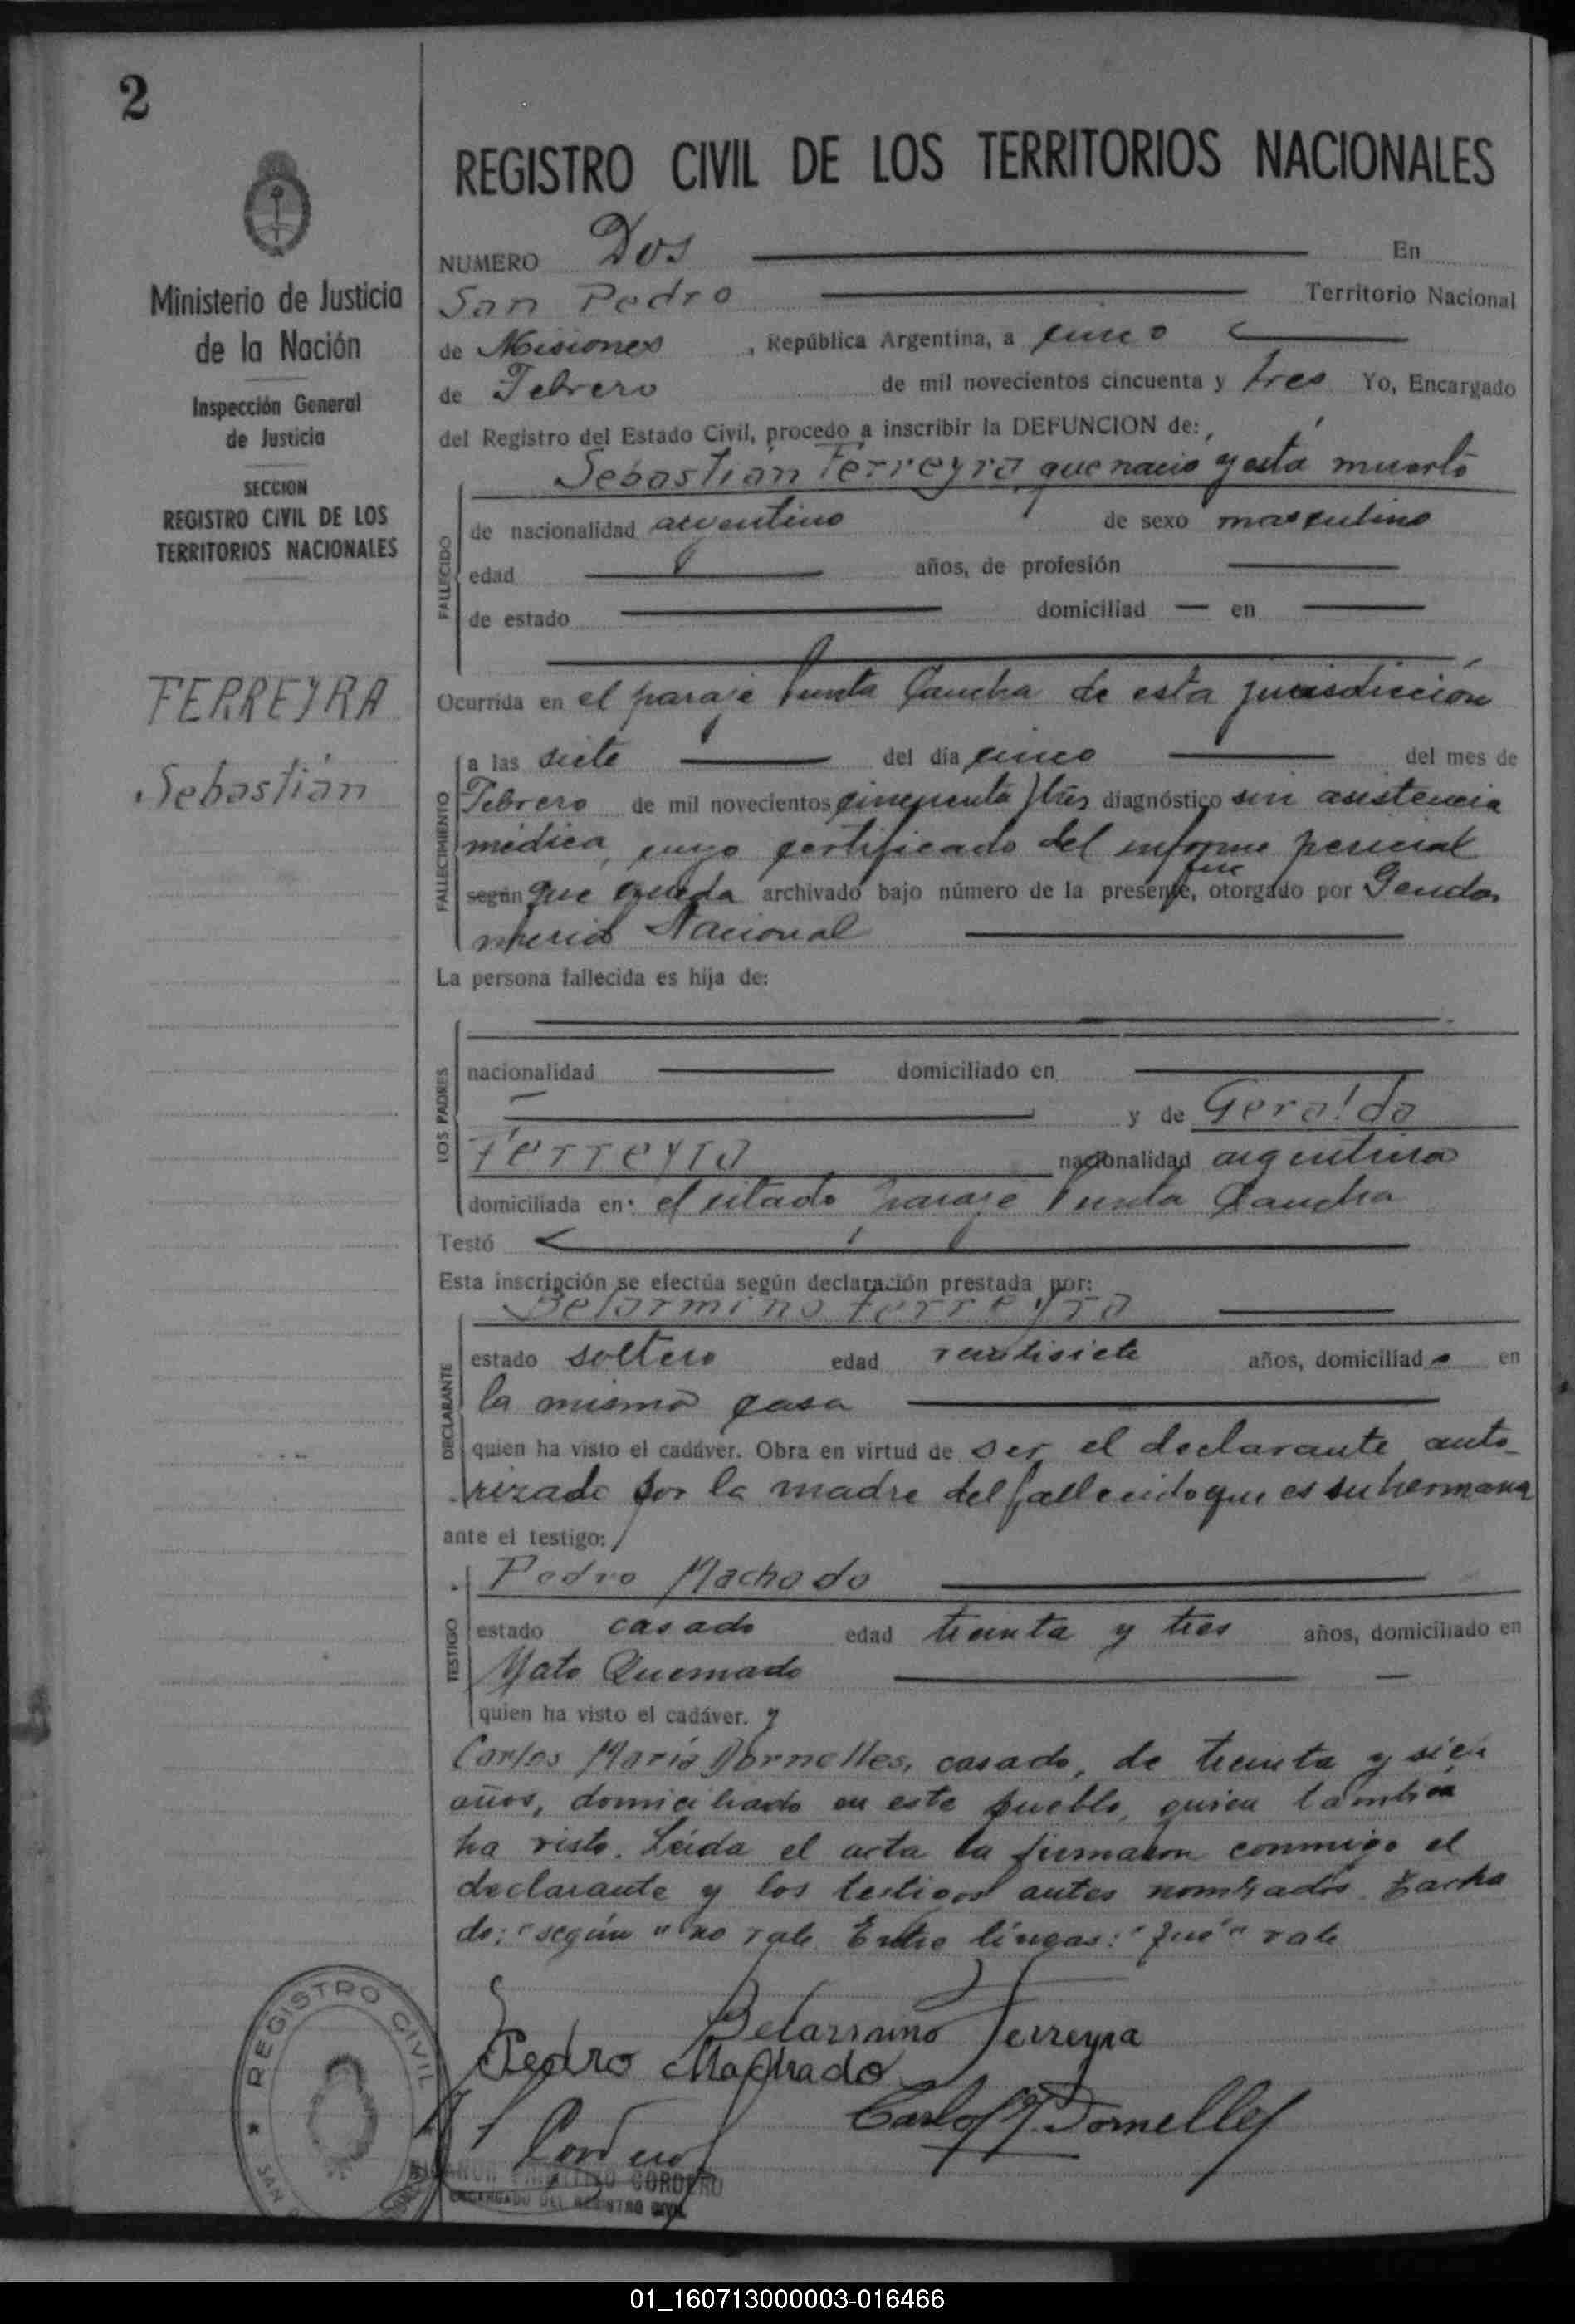 2
Ministerio de Justicia
de la Nación
Inspección General
de Justicia
SECCION
REGISTRO CIVIL DE LOS
TERRITORIOS NACIONALES
FERREYRA
Sebastián
REGISTRO CIVIL DE LOS TERRITORIOS NACIONALES
NUMERO Dos En
San Pedro Territorio Nacional
de Misiones, República Argentina, a cinco
de Febrero de mil novecientos cincuenta y tres Yo, Encargado
del Registro del Estado Civil, procedo a inscribir la DEFUNCION de:
Sebastián Ferreyra, que nació y está muerto
FALLECIDO
de nacionalidad argentino de sexo masculino
edad años, de profesión
de estado domiciliad en
Ocurrida en el paraje Punta Cancha de esta jurisdicción
FALLECIMIENTO
a las siete del día cinco del mes de
Febrero de mil novecientos cincuenta y tres diagnóstico sin asistencia
médica, cuyo certificado del informe pericial
fué
según que queda archivado bajo número de la presente, otorgado por Gendar
mería Nacional
La persona fallecida es hija de:
LOS PADRES
nacionalidad domiciliado en
y de Geralda
Ferreyra nacionalidad argentina
domiciliada en: el citado paraje Punta Cancha
Testó
Esta inscripción se efectúa según declaración prestada por:
Belarmino Ferreyra
DECLARANTE
estado soltero edad veintisiete años, domiciliado en
la misma casa
quien ha visto el cadáver. Obra en virtud de ser el declarante auto-
rizado por la madre del fallecido que es su hermana
ante el testigo:
Pedro Machado
TESTIGO
estado casado edad treinta y tres años, domiciliado en
Mato Quemado
quien ha visto el cadáver. y
Carlos María Dornelles, casado, de treinta y seis
años, domiciliado en este pueblo, quien también
ha visto. Leída el acta la firmaron conmigo el
declarante y los testigos antes nombrados. Tacha
do: "según" no vale. Entre líneas: "fué" vale
Belarmino Ferreyra
Pedro Machado
Carlos M. Dornelles
Cordero
CORDERO
ENCARGADO DEL REGISTRO CIVIL
REGISTRO CIVIL
SAN
01_160713000003-016466